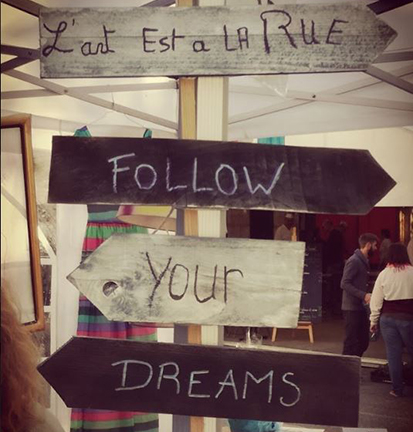 L'art Est a LA RUE
FOLLOW
Your
DREAMS